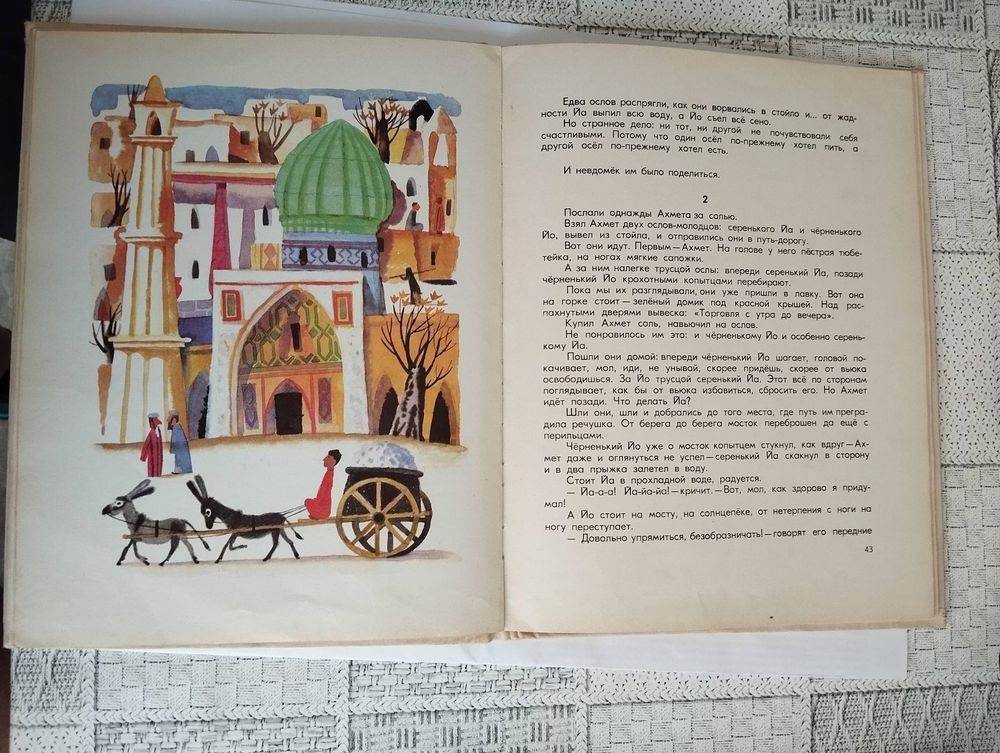 Едва ослов распрягли, как они ворвались в стойло и... от жад-
ности Йа выпил всю воду, а Йо съел всё сено.
Но странное дело: ни тот, ни другой не почувствовали себя
счастливыми. Потому что один осёл по-прежнему хотел пить, а
другой осёл по-прежнему хотел есть.
И невдомёк им было поделиться.
2
Послали однажды Ахмета за солью.
Взял Ахмет двух ослов-молодцов: серенького Йа и чёрненького
Йо, вывел из стойла, и отправились они в путь-дорогу.
Вот они идут. Первым—Ахмет. На голове у него пёстрая тюбе-
тейка, на ногах мягкие сапожки.
А за ним налегке трусцой ослы: впереди серенький Йа, позади
чёрненький Йо крохотными копытцами перебирают.
Пока мы их разглядывали, они уже пришли в лавку. Вот она
на горке стоит—зелёный домик под красной крышей. Над рас-
пахнутыми дверями вывеска: «Торговля с утра до вечера».
Купил Ахмет соль, навьючил на ослов.
Не понравилось им это: и чёрненькому Йо и особенно серень-
кому Йа.
Пошли они домой: впереди чёрненький Йо шагает, головой по-
качивает, мол, иди, не унывай, скорее придёшь, скорее от вьюка
освободишься. За Йо трусцой серенький Йа. Этот всё по сторонам
поглядывает, как бы от вьюка избавиться, сбросить его. Но Ахмет
идёт позади. Что делать Йа?
Шли они, шли и добрались до того места, где путь им прегра-
дила речушка. От берега до берега мосток переброшен да ещё с
перильцами.
Чёрненький Йо уже о мосток копытцем стукнул, как вдруг—Ах-
мет даже и оглянуться не успел—серенький Йа скакнул в сторону
и в два прыжка залетел в воду.
Стоит Йа в прохладной воде, радуется.
— Йа-а-а! Йа-йа-йа!—кричит.—Вот, мол, как здорово я приду-
мал!
А Йо стоит на мосту, на солнцепёке, от нетерпения с ноги на
ногу переступает.
— Довольно упрямиться, безобразничать!—говорят его передние
43